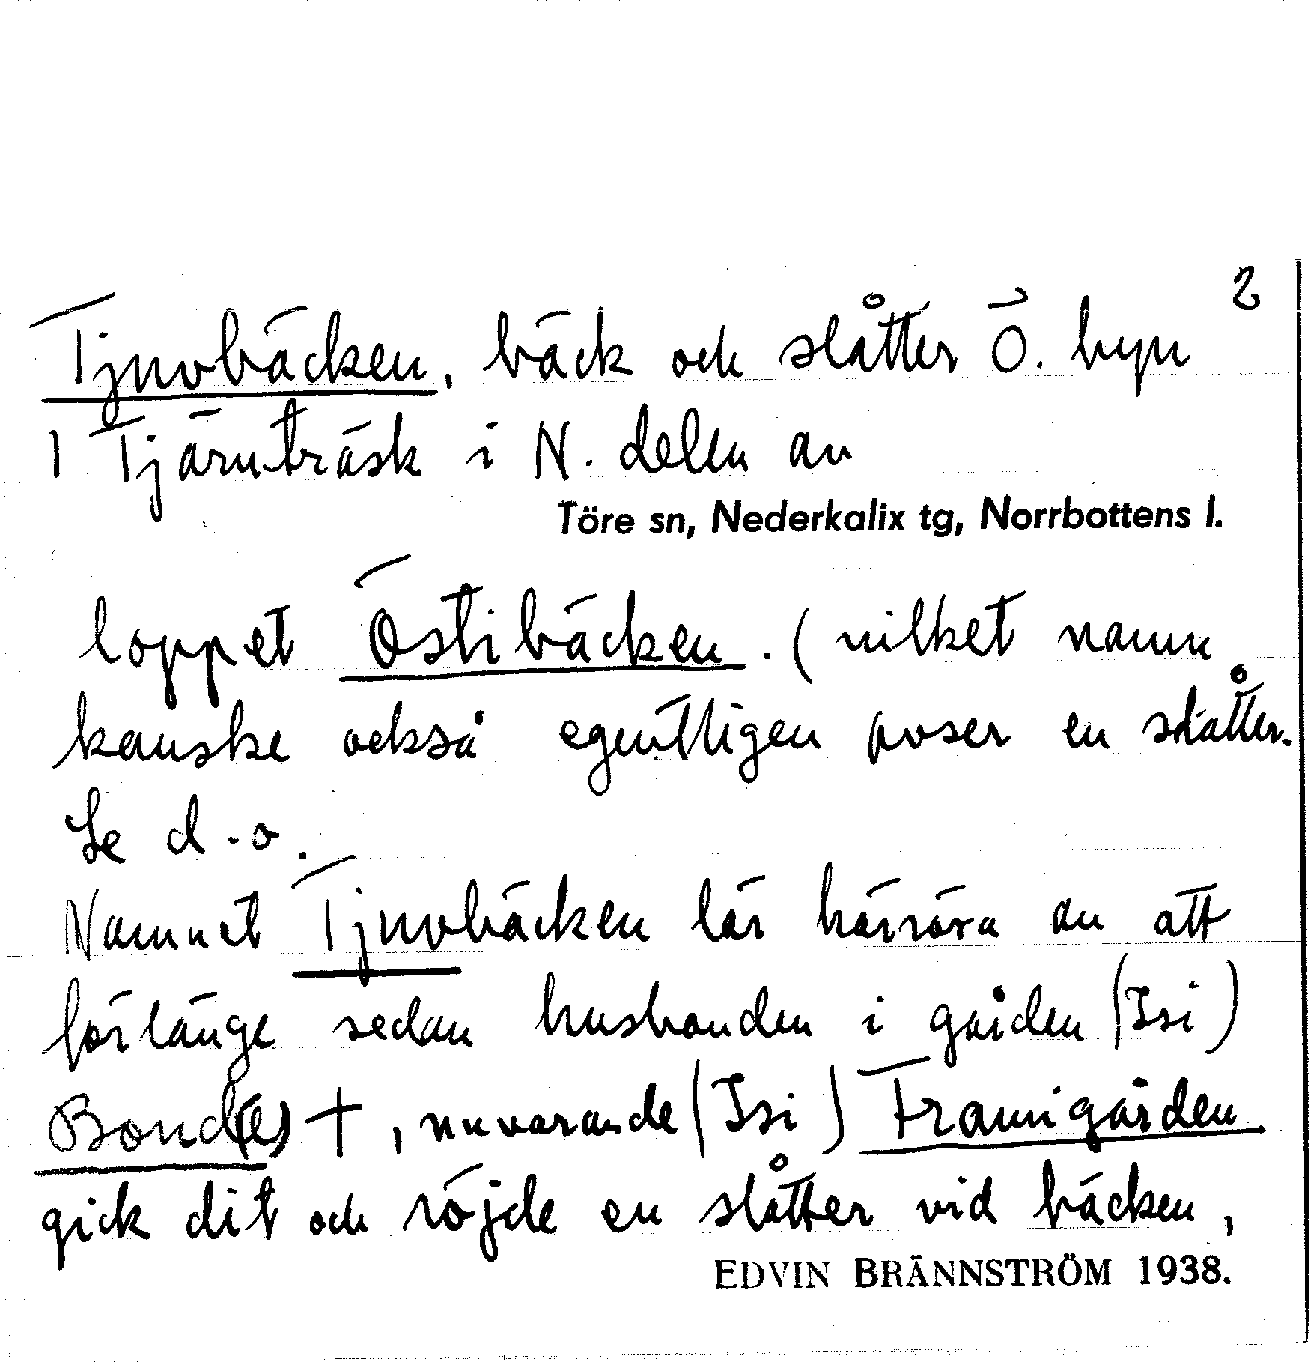 2
Tjuvbäcken, bäck och slåtter Ö. byn
1 Tjärnträsk i N. delen av
Töre sn, Nederkalix tg, Norrbottens l.
loppet Östibäcken. (vilket namn
kanske också egentligen avser en slåtter.
Se d.o.
Namnet Tjuvbäcken lär härröra av att
för länge sedan husbonden i gården (Isi)
Bond(es) †, nuvarande (Isi) Framigården
gick dit och röjde en slåtter vid bäcken,
EDVIN BRÄNNSTRÖM 1938.